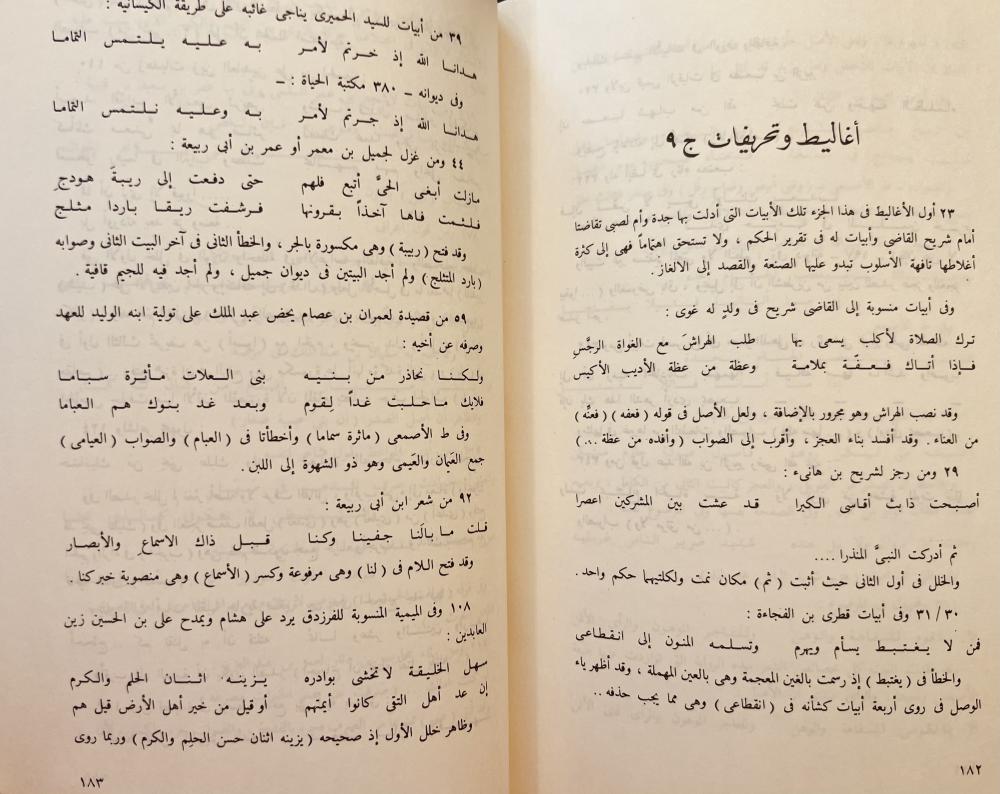 أغاليط وتحريفات ج ٩
٢٣ أول الأغاليط فى هذا الجزء تلك الأبيات التى أدلت بها جدة وأم لصبى تقاضتا
أمام شريح القاضى وأبيات له فى تقرير الحكم ، ولا تستحق اهتماماً فهى إلى كثرة
أغلاطها تافهة الأسلوب تبدو عليها الصنعة والقصد إلى الالغاز.
وفى أبيات منسوبة إلى القاضى شريح فى ولدٍ له غوى :
ترك الصلاة لأكلب يسعى بها طلب الهراشَ مع الغواة الرجَّسِ
فـإذا أتـاك فـعـفّـة بملامة وعظة من عظة الأديب الأكيس
وقد نصب الهراش وهو مجرور بالإضافة ، ولعل الأصل فى قوله ( فعفه ) ( فعنّه )
من العناء . وقد أفسد بناء العجز ، وأقرب إلى الصواب ( وأفده من عظة ... )
٢٩ ومن رجز لشريح بن هانىء :
أصبحت ذا بث أقاسى الكبرا قد عشت بين المشركين اعصرا
ثم أدركت النبىَّ المنذرا ....
والخلل فى أول الثانى حيث أثبت ( ثم ) مكان ثمت ولكلتيهما حكم واحد .
٣٠ / ٣١ وفى أبيات قطرى بن الفجاءة :
فمن لا يغتبط يسأم ويهرم وتسلمه المنون إلى انقطاعى
والخطأ فى ( يغتبط ) إذ رسمت بالغين المعجمة وهى بالعين المهملة ، وقد أظهر ياء
الوصل فى روى أربعة أبيات كشأنه فى ( انقطاعى ) وهى مما يجب حذفه ..
١٨٢
٣٩ من أبيات للسيد الحميرى يناجى غائبه على طريقة الكيسانية :
هدانا الله إذ خرتم لأمر به عليه يلتمس التماما
وفى ديوانه ــ ٣٨٠ مكتبة الحياة : ــ
هدانا الله إذ جرتم لأمر به وعليه نلتمس التماما
٤٤ ومن غزل لجميل بن معمر أو عمر بن أبى ربيعة :
مازلت أبغى الحىَّ أتبع فلهم حتى دفعت إلى ريبةَ هودجِ
فلثمت فاها آخذاً بقرونها فرشفت ريقا باردا مثلج
وقد فتح ( ربيبة ) وهى مكسورة بالجر ، والخطأ الثانى فى آخر البيت الثانى وصوابه
( بارد المتثلج ) ولم أجد البيتين فى ديوان جميل ، ولم أجد فيه للجيم قافية .
٥٩ من قصيدة لعمران بن عصام يحض عبد الملك على تولية ابنه الوليد للعهد
وصرفه عن أخيه :
ولكنا نحاذر من بنيه بنى العلات مأثرة سباما
فلابك ما حلبت غداً لِقوم وبعد غد بنوك هم العباما
وفى ط الأصمعى ( ماثرة سماما ) وأخطأتا فى ( العبام ) والصواب ( العيامى )
جمع العَمان والعَيمى وهو ذو الشهوة إلى اللبن .
٩٢ من شعر ابن أبى ربيعة :
قلت ما بالَنا جفينا وكنا قبل ذاك الاسماعِ والأبصار
وقد فتح اللام فى ( لنا ) وهى مرفوعة وكسر ( الأسماع ) وهى منصوبة خبر كنا .
١٠٨ وفى الميمية المنسوبة للفرزدق يرد على هشام ويمدح على بن الحسين زين
العابدين :
سهل الخليقة لا تخشى بوادره يزينه اثنان الحلم والكرم
إن عد أهل التقى كانوا أيمتهم أو قيل من خير أهل الأرض قيل هم
وظاهر خلل الأول إذ صحيحه ( يزينه اثنان حسن الحلِم والكرم ) وربما روى
١٨٣